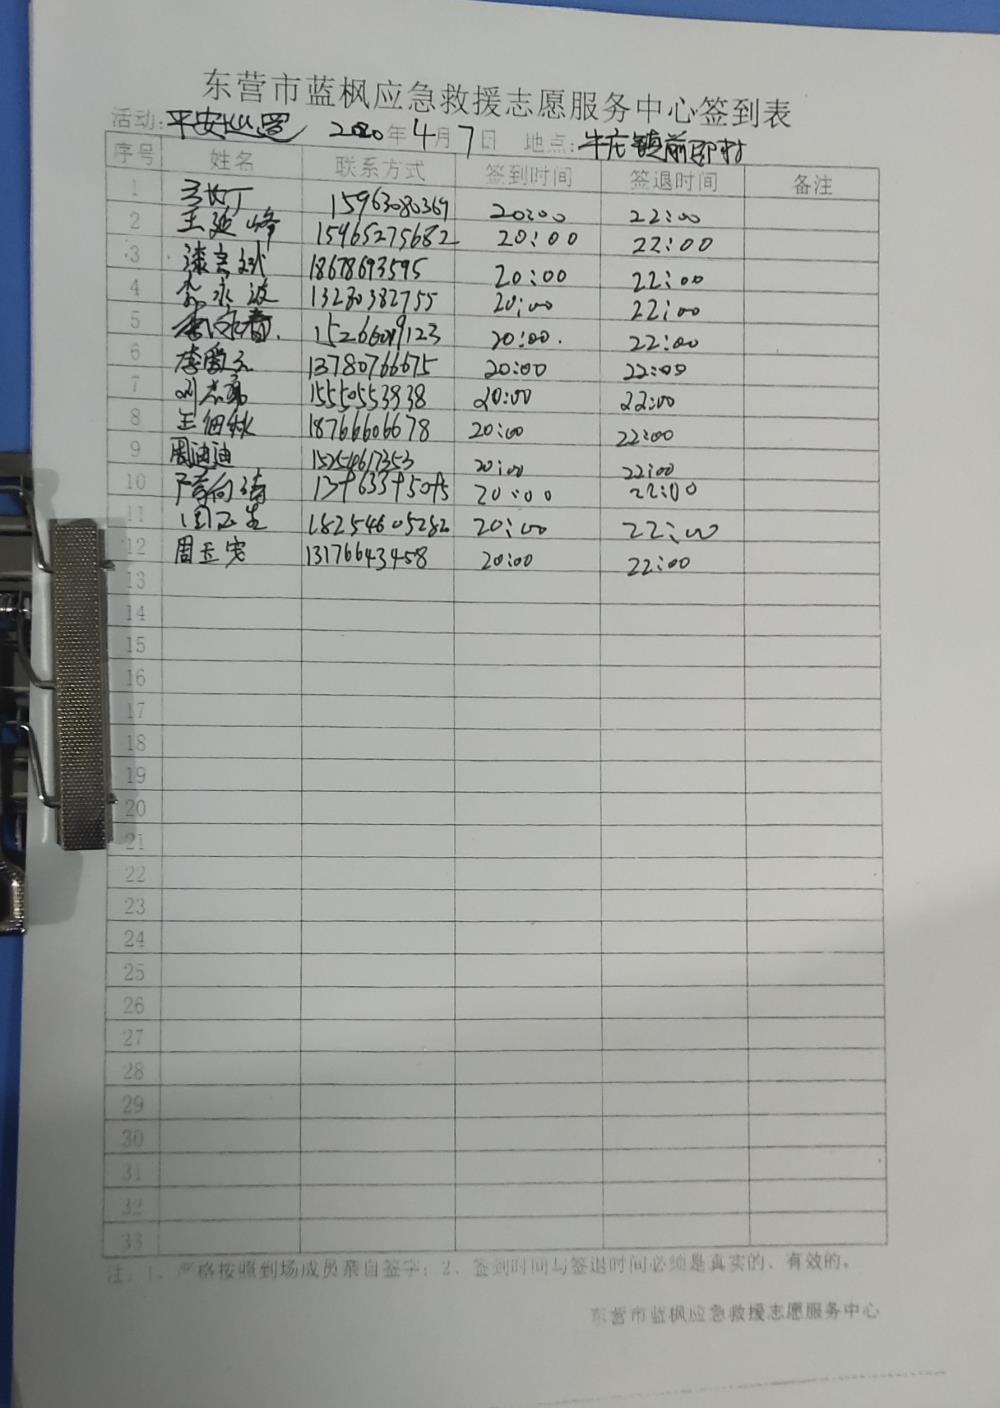 东营市蓝枫应急救援志愿服务中心签到表
活动:平安巡逻 2020年4月7日 地点:牛庄镇前邵村
序号 姓名 联系方式 签到时间 签退时间 备注
1 15963080369 20:00 22:00
2 王延峰 15965275682 20:00 22:00
3 漆玄斌 18678693595 20:00 22:00
4 永波 13280382755 20:00 22:00
5 李永春 15266009123 20:00 22:00
6 李爱元 13780766675 20:00 22:00
7 刘志勇 15550553838 20:00 22:00
8 王佃秋 18766606678 20:00 22:00
9 周迪迪 15254617353 20:00 22:00
10 20:00 22:00
11 周卫生 18254605282 20:00 22:00
12 周玉宪 13176643458 20:00 22:00
13
14
15
16
17
18
19
20
21
22
23
24
25
26
27
28
29
30
31
32
33
注:1、严格按照到场成员亲自签字;2、签到时间与签退时间必须是真实的、有效的。
东营市蓝枫应急救援志愿服务中心